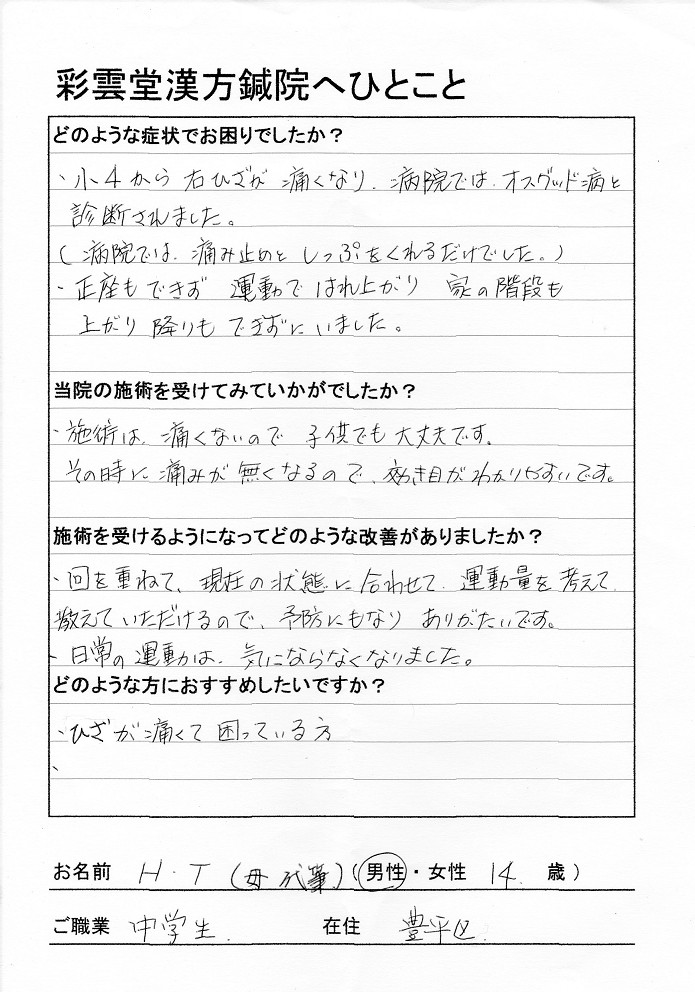 彩雲堂漢方鍼院へひとこと
どのような症状でお困りでしたか？
・小4から 右ひざが 痛くなり、病院では、オスグッド病と
診断されました。
（病院では、痛み止めと しっぷをくれるだけでした。）
・正座もできず 運動で はれ上がり 家の階段も
上がり 降りも できずにいました。
当院の施術を受けてみていかがでしたか？
・施術は、痛くないので 子供でも 大丈夫です。
その時に 痛みが 無くなるので、効き目が わかりやすいです。
施術を受けるようになってどのような改善がありましたか？
・回を重ねて、現在の状態に合わせて、運動量を考えて、
教えていただけるので、予防にもなり ありがたいです。
・日常の運動は、気にならなくなりました。
どのような方におすすめしたいですか？
・ひざが痛くて 困っている方
、
お名前 H・T （母 代筆）（男性・女性 14. 歳）
ご職業 中学生. 在住 豊平区.